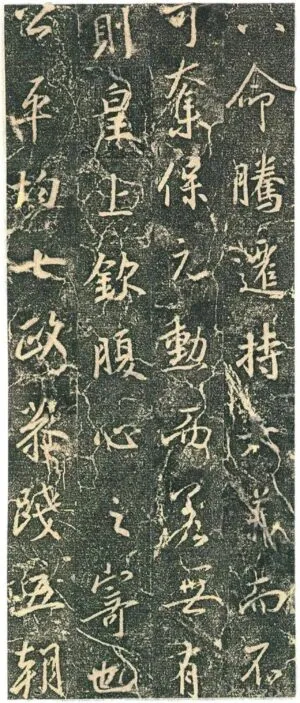 命騰遷持大義而不
可奪保元勳而若無有
則皇上欽腹心之寄也
公平均七政恭踐五朝